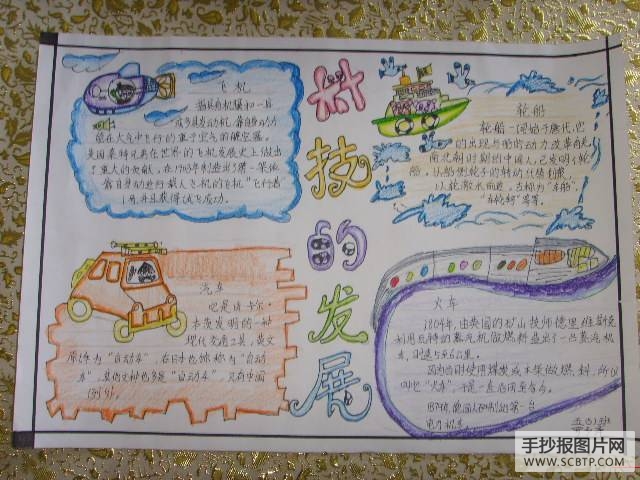 科技的发展
飞机
指具有机翼和一具
或多具发动机,靠自身动力
能在大气中飞行的重于空气的航空器。
美国莱特兄弟在世界的飞机发展史上做出
了重大的贡献,在1903年制造出了第一架依
靠自身动力进行载人飞行的飞机"飞行者
1号,并且获得试飞成功。
轮船
轮船一词始于唐代,它
的出现与船的动力改革有关
南北朝时期的中国人,已发明了轮
船,以船侧轮子的转动代替划桨,
以轮激水前进,古称为"车船",
"车轮舸"等等。
汽车
它是由卡尔·
本茨发明的一种
现代交通工具,英文
原译为"自动车",在日本也称为"自动
车",其他文种也多是"自动车",只有中国
例外。
火车
1804年,由英国的矿山技师德里维斯克
利用瓦特的蒸汽机
时速为5至6公里。
因为当时使用煤炭或木柴做燃料,所以
叫它"火车",于是一直沿用至今。
1879年,德国人研制出第一台
电力机车。
手抄报图片网
WWW.SCBTP.COM